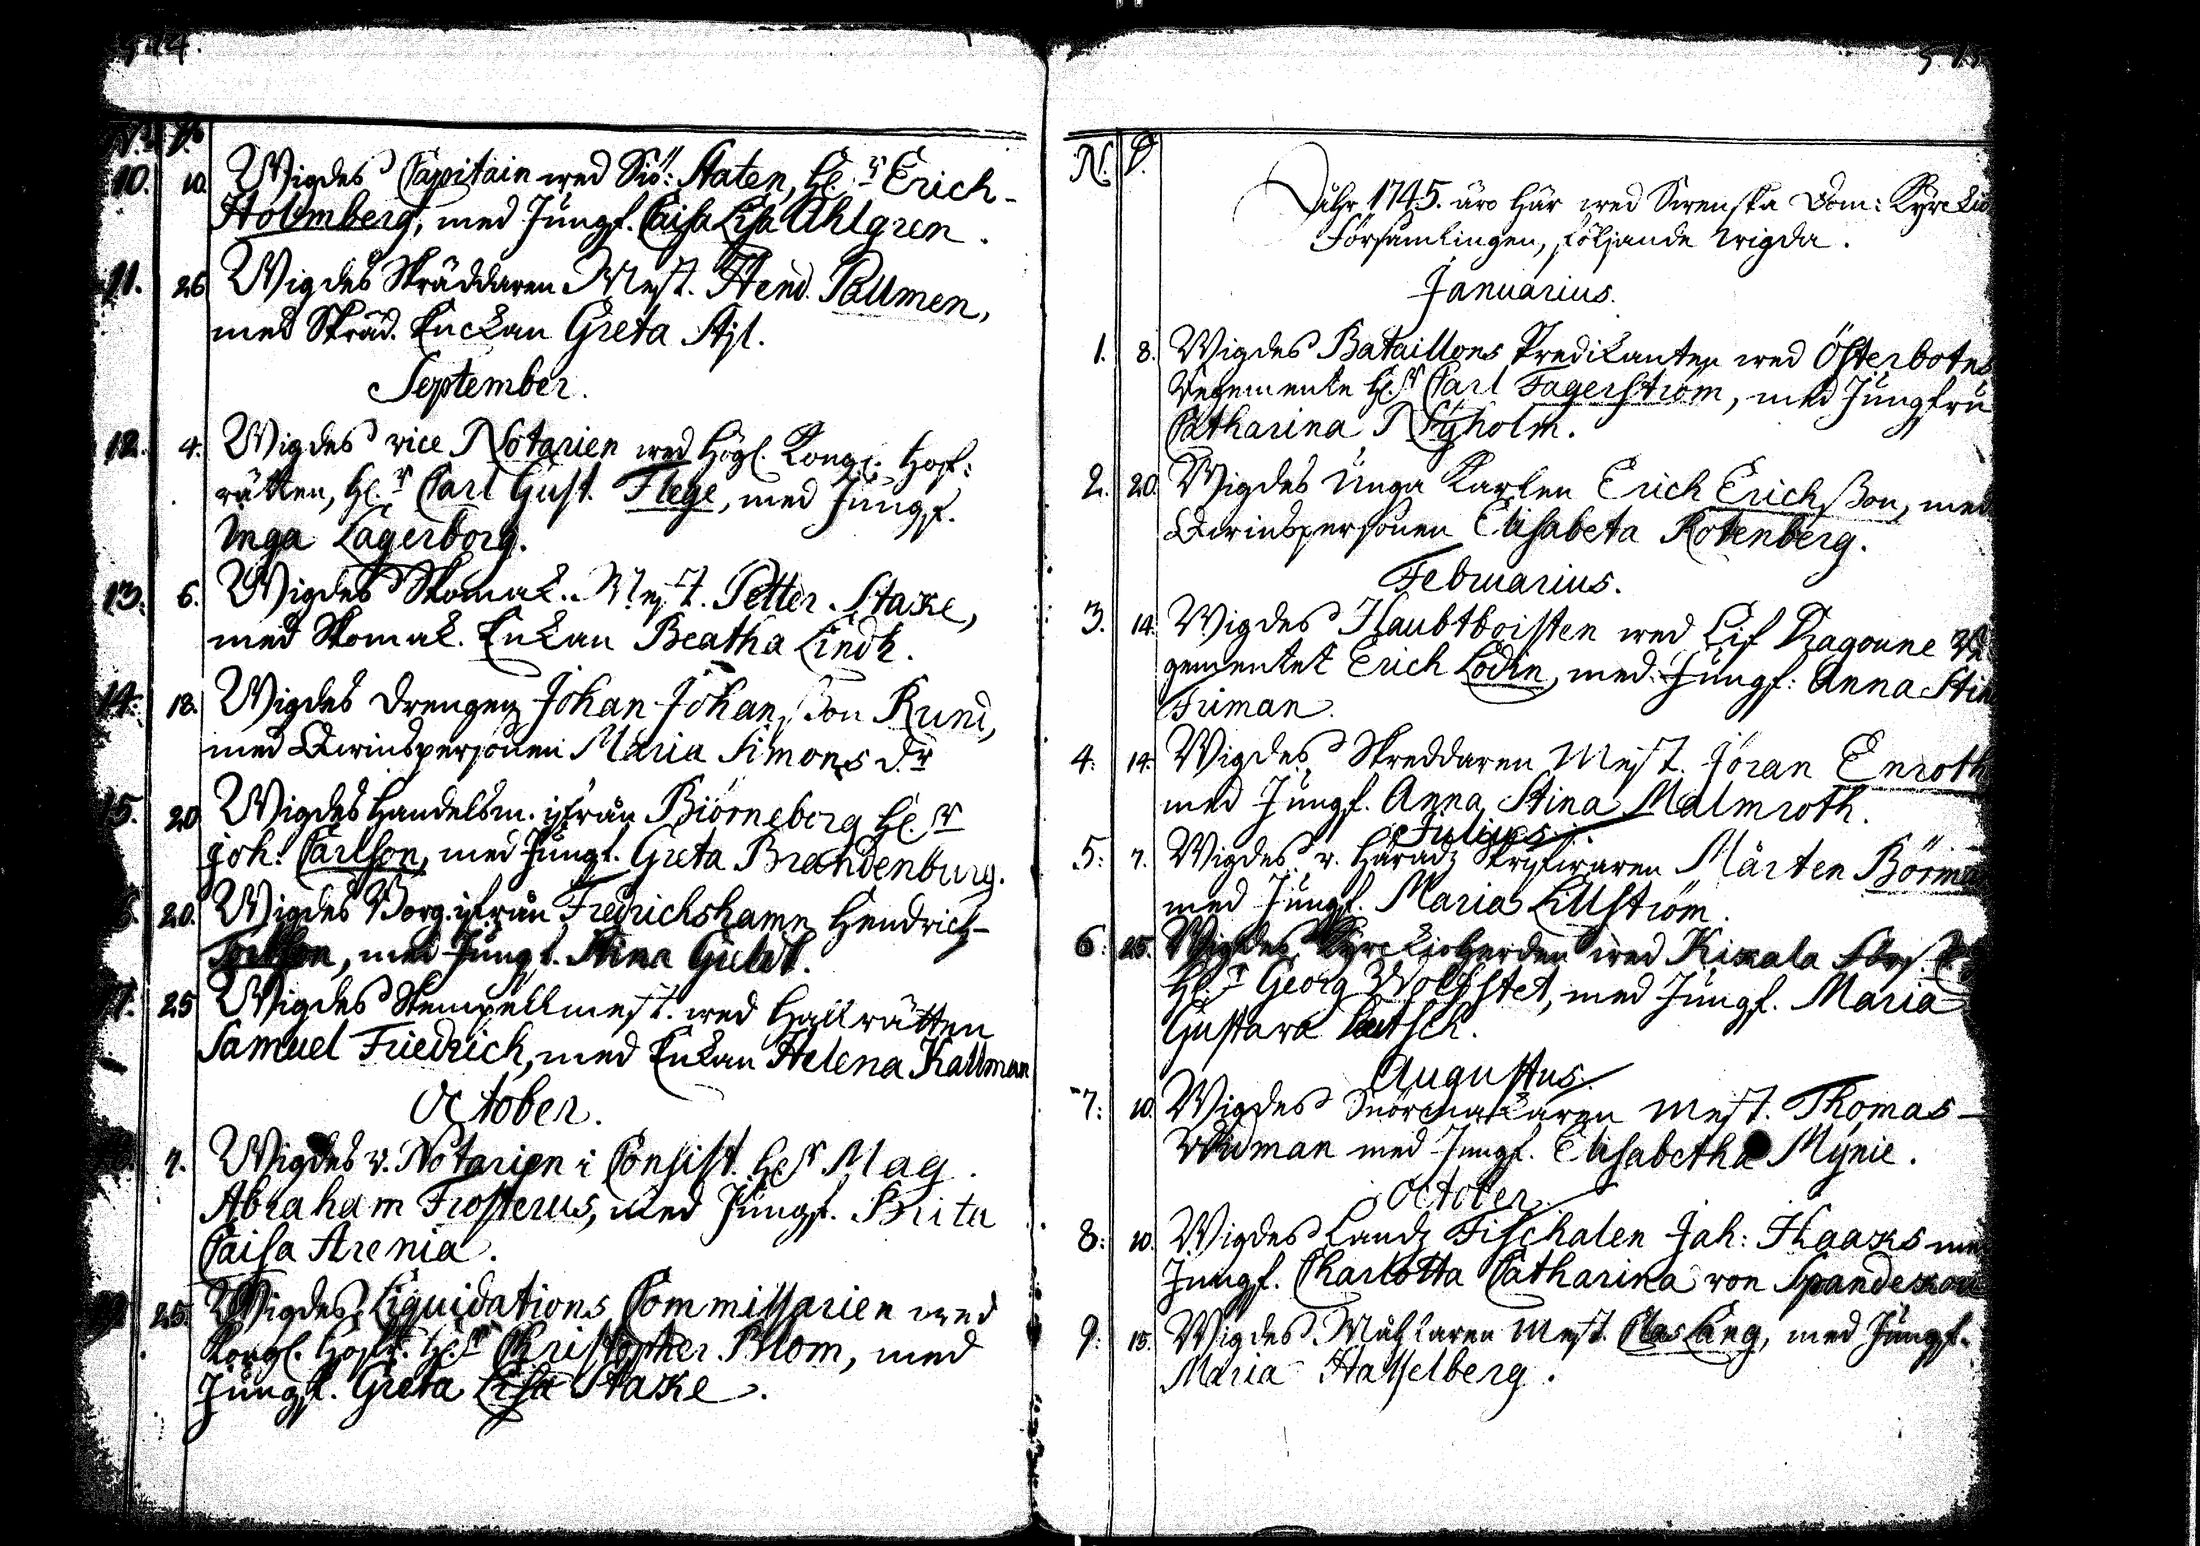 N. D.
10. 10. Wigdes Capitain wed Siö: Staten, H.r Erich
Holmberg, med Jungf. Caisa Lisa Ahlgren.
11. 26 Wigdes Skräddaren Mest. Hend. Pallmen,
med Skräd. Enckan Greta
September.
12. 4. Wigdes vice Notarien wed Högl. Kongl. Hof:
rätten, H.r Carl Gust. Flege, med Jungf.
Inga Lagerborg.
13. 6. Wigdes Skomak. Mest. Petter Stake,
med Skomak. Enkan Beatha Lindh.
14. 18. Wigdes Drengen Johan Johansson Kuni,
med Qwinspersonen Maria Simons d.r
15. 20 Wigdes Handelsm. ifrån Biörneborg H.r
Joh: Carlson, med Jungf. Greta Brandenburg.
20. Wigdes Borg. ifrån Fredrichshamn Hendrich
med Jungf. Stina
25 Wigdes Stempellmest. wed Hallrätten
Samuel Friedrich, med Enkan Helena Kallman
October.
7. Wigdes v. Notarien i Consist. H.r Mag.
Abraham Frosterus, med Jungf. Brita
Caisa Arenia.
25. Wigdes Liquidations Commissarien wed
Kongl. Hofr. H.r Christopher Blom, med
Jungf. Greta Lisa Stake.
N. D.
Åhr 1745. äro här wed Swenska Dom: Kyrckio
Församblingen, följande wigda.
Januarius.
1. 8. Wigdes Bataillons Predikanten wed Österbotns
Regemente H.r Carl Fagerström, med Jungfru
Catharina Nyholm.
2. 20. Wigdes Unga Karlen Erich Erichsson, med
Qwinspersonen Elisabeta Rotenberg.
Februarius.
3. 14. Wigdes Haubtboisten wed Lif Dragoune Re
gementet Erich Lodin, med Jungf: Anna Stin
Friman.
4: 14. Wigdes Skreddaren Mest. Jöran Enroth
med Jungf. Anna Stina Malmroth.
Julius.
5: 7. Wigdes v. Häradz Skrifwaren Mårten Börma
med Jungf. Maria Lillström.
6: 25. Wigdes Kyrckioherden wed Kixala
H.r Georg Wolfstet, med Jungf. Maria
Gustava
Augustus.
7: 10. Wigdes Snörmakaren Mest. Thomas
Widman med Jungf. Elisabetha Mynie.
October.
8: 10. Wigdes Landz Fischalen Jah: Haaks med
Jungf. Charlotta Catharina von
9: 15. Wigdes Mest. Clas Lang, med Jungf.
Maria Hasselberg.